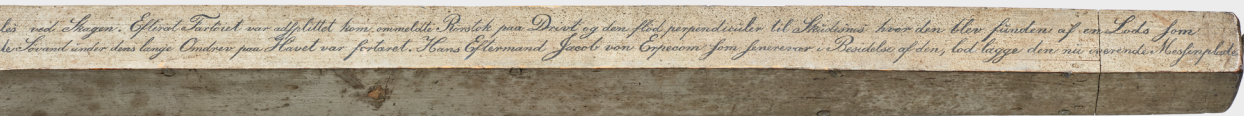 les ved Skagen. Efterat Fartöiet var adsplittet kom ommeldte Rorstok paa Drivt og den flöd perpendiculer til Skudismis hvor den blev funden af en Lods som
de Sovand under dens lange Omdrev paa Havet var fortæret. Hans Eftermand Jacob von Erpecom som senere var i Besidelse af den, lod lægge den nu værende Messinplade